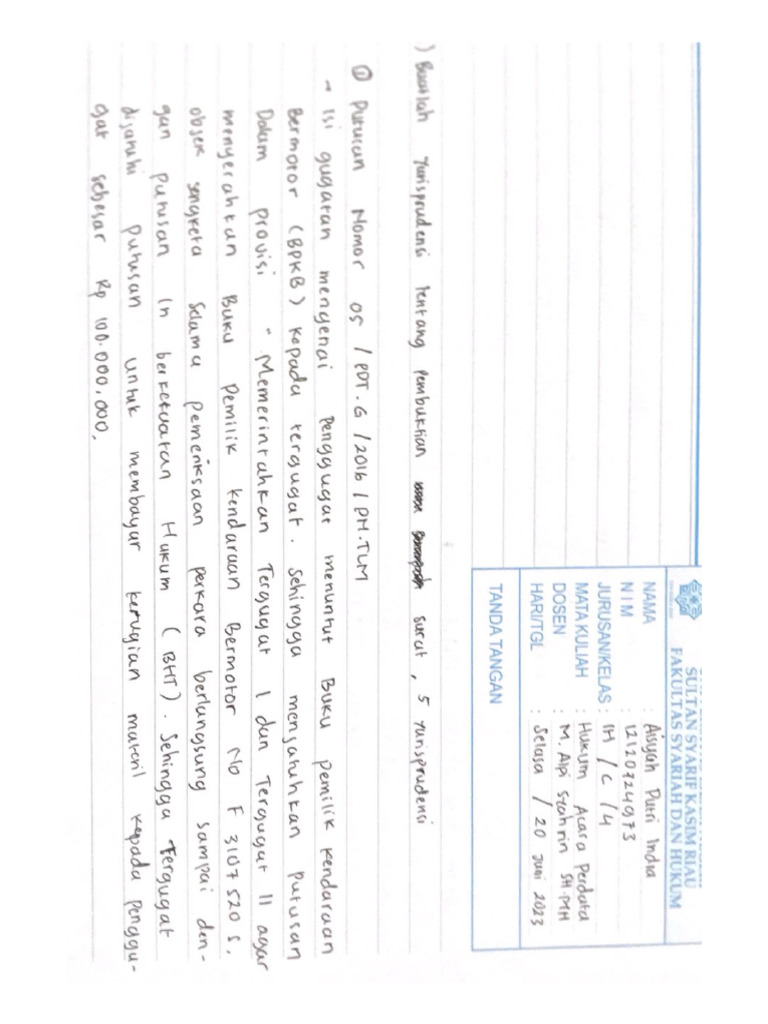 SULTAN SYARIF KASIM RIAU
FAKULTAS SYARIAH DAN HUKUM
NAMA : Aisyah Putri Indra
NIM : 12120724973
JURUSAN/KELAS : IH / C / 4
MATA KULIAH : Hukum Acara Perdata
DOSEN : M. Alpi Syahrin SH.MH
HARI/TGL : Selasa / 20 Juni 2023
TANDA TANGAN
) Buatlah Yurisprudensi tentang Pembuktian surat, 5 Yurisprudensi
① Putusan Nomor 05 / PDT.G / 2016 / PN.TLM
- Isi gugatan mengenai Penggugat menuntut Buku Pemilik Kendaraan
Bermotor (BPKB) kepada tergugat. Sehingga menjatuhkan Putusan
Dalam Provisi - Memerintahkan Tergugat I dan Tergugat II agar
menyerahkan Buku Pemilik Kendaraan Bermotor No F 3107520 S,
objek sengketa selama pemeriksaan perkara berlangsung sampai den-
gan putusan In berkekuatan Hukum (BHT). Sehingga Tergugat
dijatuhi putusan untuk membayar kerugian materil kepada penggu-
gat sebesar Rp 100.000,000,